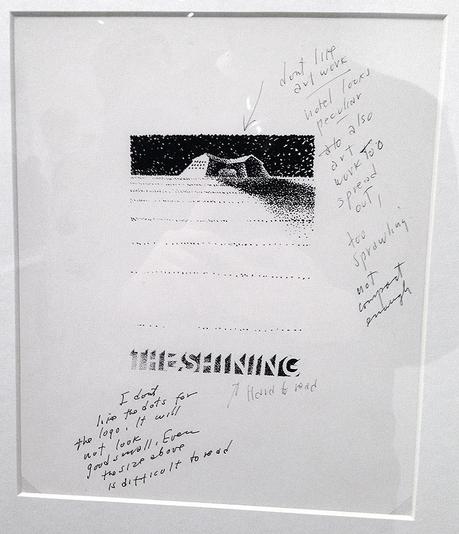 dont like
art work
hotel looks
peculiar
also
art
work too
spread
out,
too
sprawling
not
compact
enough
THE SHINING
Hard to read
I dont
like the dots for
the logo. It will
not look
good small, Even
the size above
is difficult to read